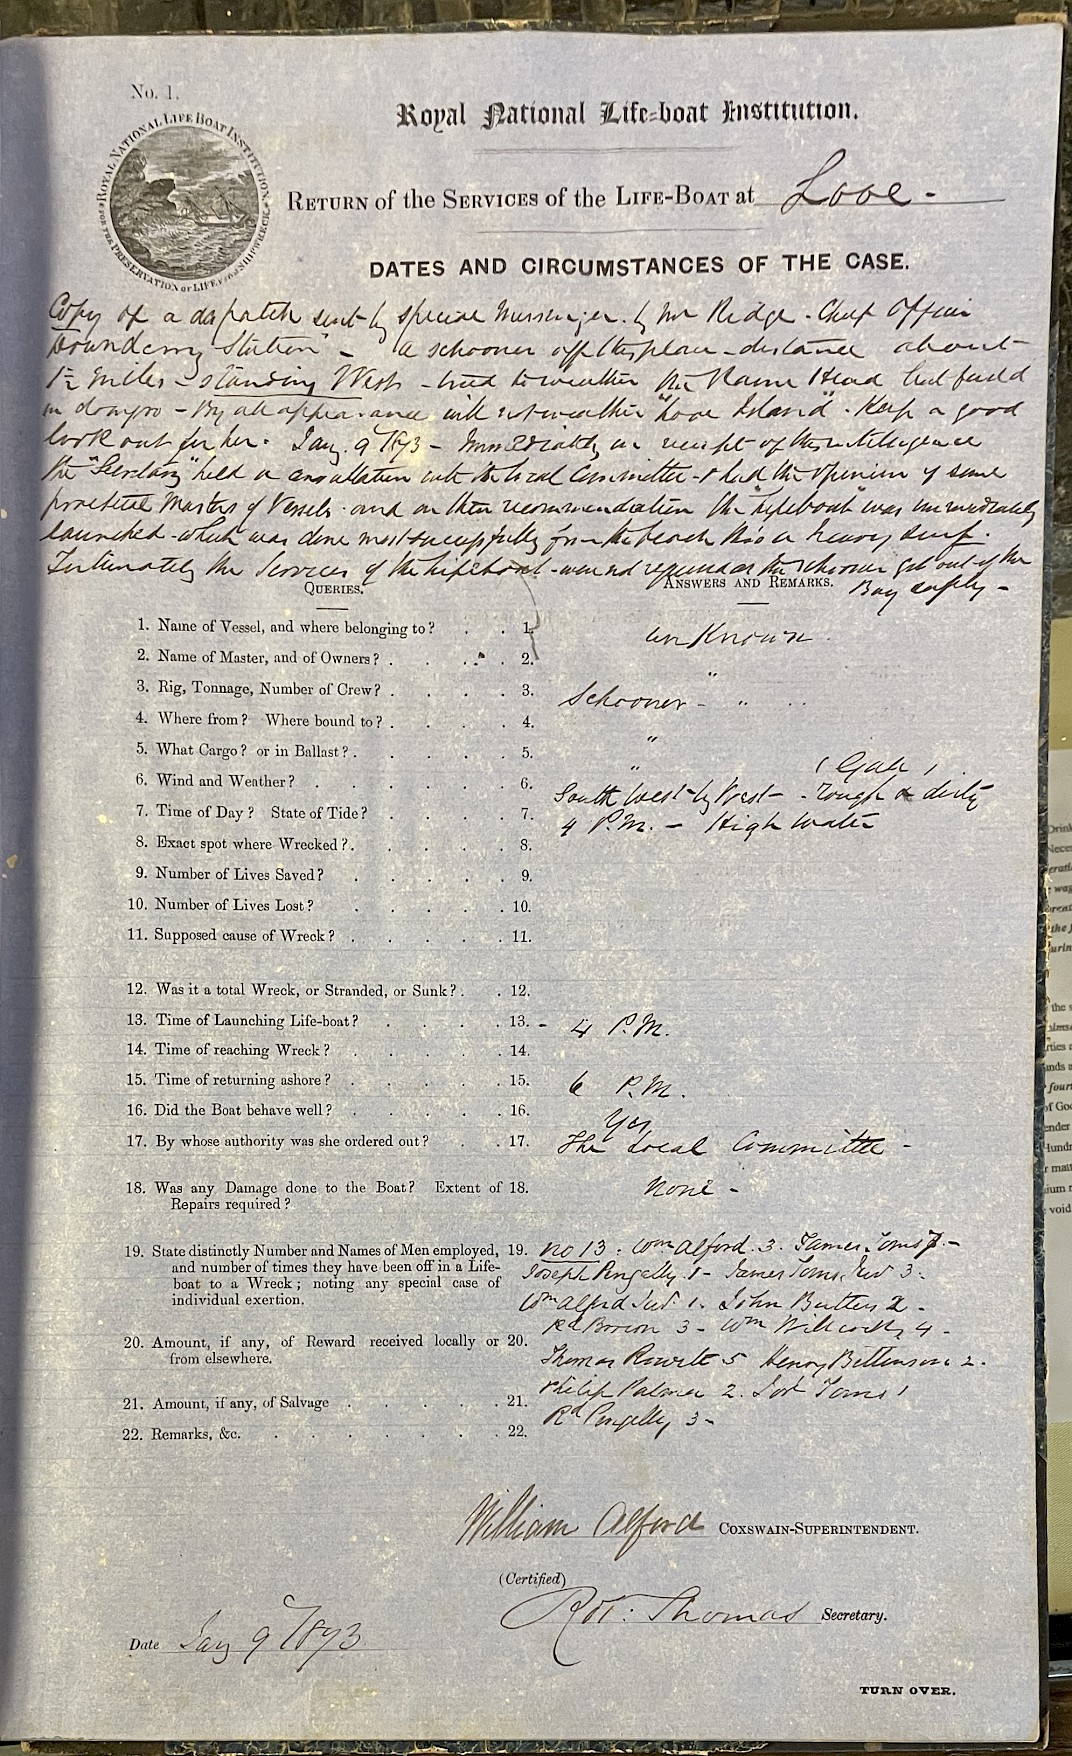 No. 1.
ROYAL NATIONAL LIFE BOAT INSTITUTION
FOR THE PRESERVATION OF LIFE FROM SHIPWRECK.
Royal National Life-boat Institution.
RETURN of the SERVICES of the LIFE-BOAT at Looe -
DATES AND CIRCUMSTANCES OF THE CASE.
Copy of a dispatch sent by special Messenger. by Mr Ridge - Chief Officer
Station" - "A schooner off this place - distance about
1½ miles - standing West - tried to weather the Rame Head but failed
in doing so - By all appearance will not weather "Looe Island". Keep a good
look out for her. Jany. 9 1873 - Immediately on receipt of this intelligence
the "Secretary" held a consultation with the local Committee - & had the opinion of some
practical Masters of Vessels - and on their recommendation the "Lifeboat" was immediately
launched - which was done most successfully from the beach thro a heavy surf.
Fortunately the Services of the Lifeboat - were not required as the schooner got out of the
Bay safely -
QUERIES.
ANSWERS AND REMARKS.
1. Name of Vessel, and where belonging to? . . 1. unknown
2. Name of Master, and of Owners? . . . . 2. "
3. Rig, Tonnage, Number of Crew? . . . . 3. Schooner - "
4. Where from? Where bound to? . . . . 4. "
5. What Cargo? or in Ballast? . . . . 5. "
(Gale)
6. Wind and Weather? . . . . . 6. South West by West - rough & dirty
7. Time of Day? State of Tide? . . . . 7. 4 P.M. - High Water
8. Exact spot where Wrecked? . . . . 8.
9. Number of Lives Saved? . . . . . 9.
10. Number of Lives Lost? . . . . . 10.
11. Supposed cause of Wreck? . . . . . 11.
12. Was it a total Wreck, or Stranded, or Sunk? . . 12.
13. Time of Launching Life-boat? . . . . 13. - 4 P.M.
14. Time of reaching Wreck? . . . . . 14.
15. Time of returning ashore? . . . . . 15. 6 P.M.
16. Did the Boat behave well? . . . . . 16. Yes
17. By whose authority was she ordered out? . . 17. The Local Committee -
18. Was any Damage done to the Boat? Extent of 18. None -
Repairs required?
19. State distinctly Number and Names of Men employed, 19. No 13. Wm Alford. 3. James Toms 7. -
and number of times they have been off in a Life- Joseph Pengelly. 1 - James Toms, Jur 3.
boat to a Wreck; noting any special case of
individual exertion. Wm Alford Jur. 1. John Butters 2 -
Rd 3 - Wm Willcocks 4 -
20. Amount, if any, of Reward received locally or 20.
from elsewhere. Thomas Rowett 5 Henry Bettinson 2.
Philip Palmer 2. Toms 1
21. Amount, if any, of Salvage . . . . . 21.
Rd Pengelly 3 -
22. Remarks, &c. . . . . . . . 22.
William Alford COXSWAIN-SUPERINTENDENT.
(Certified)
Rot: Thomas Secretary.
Date Jany 9 1873
TURN OVER.